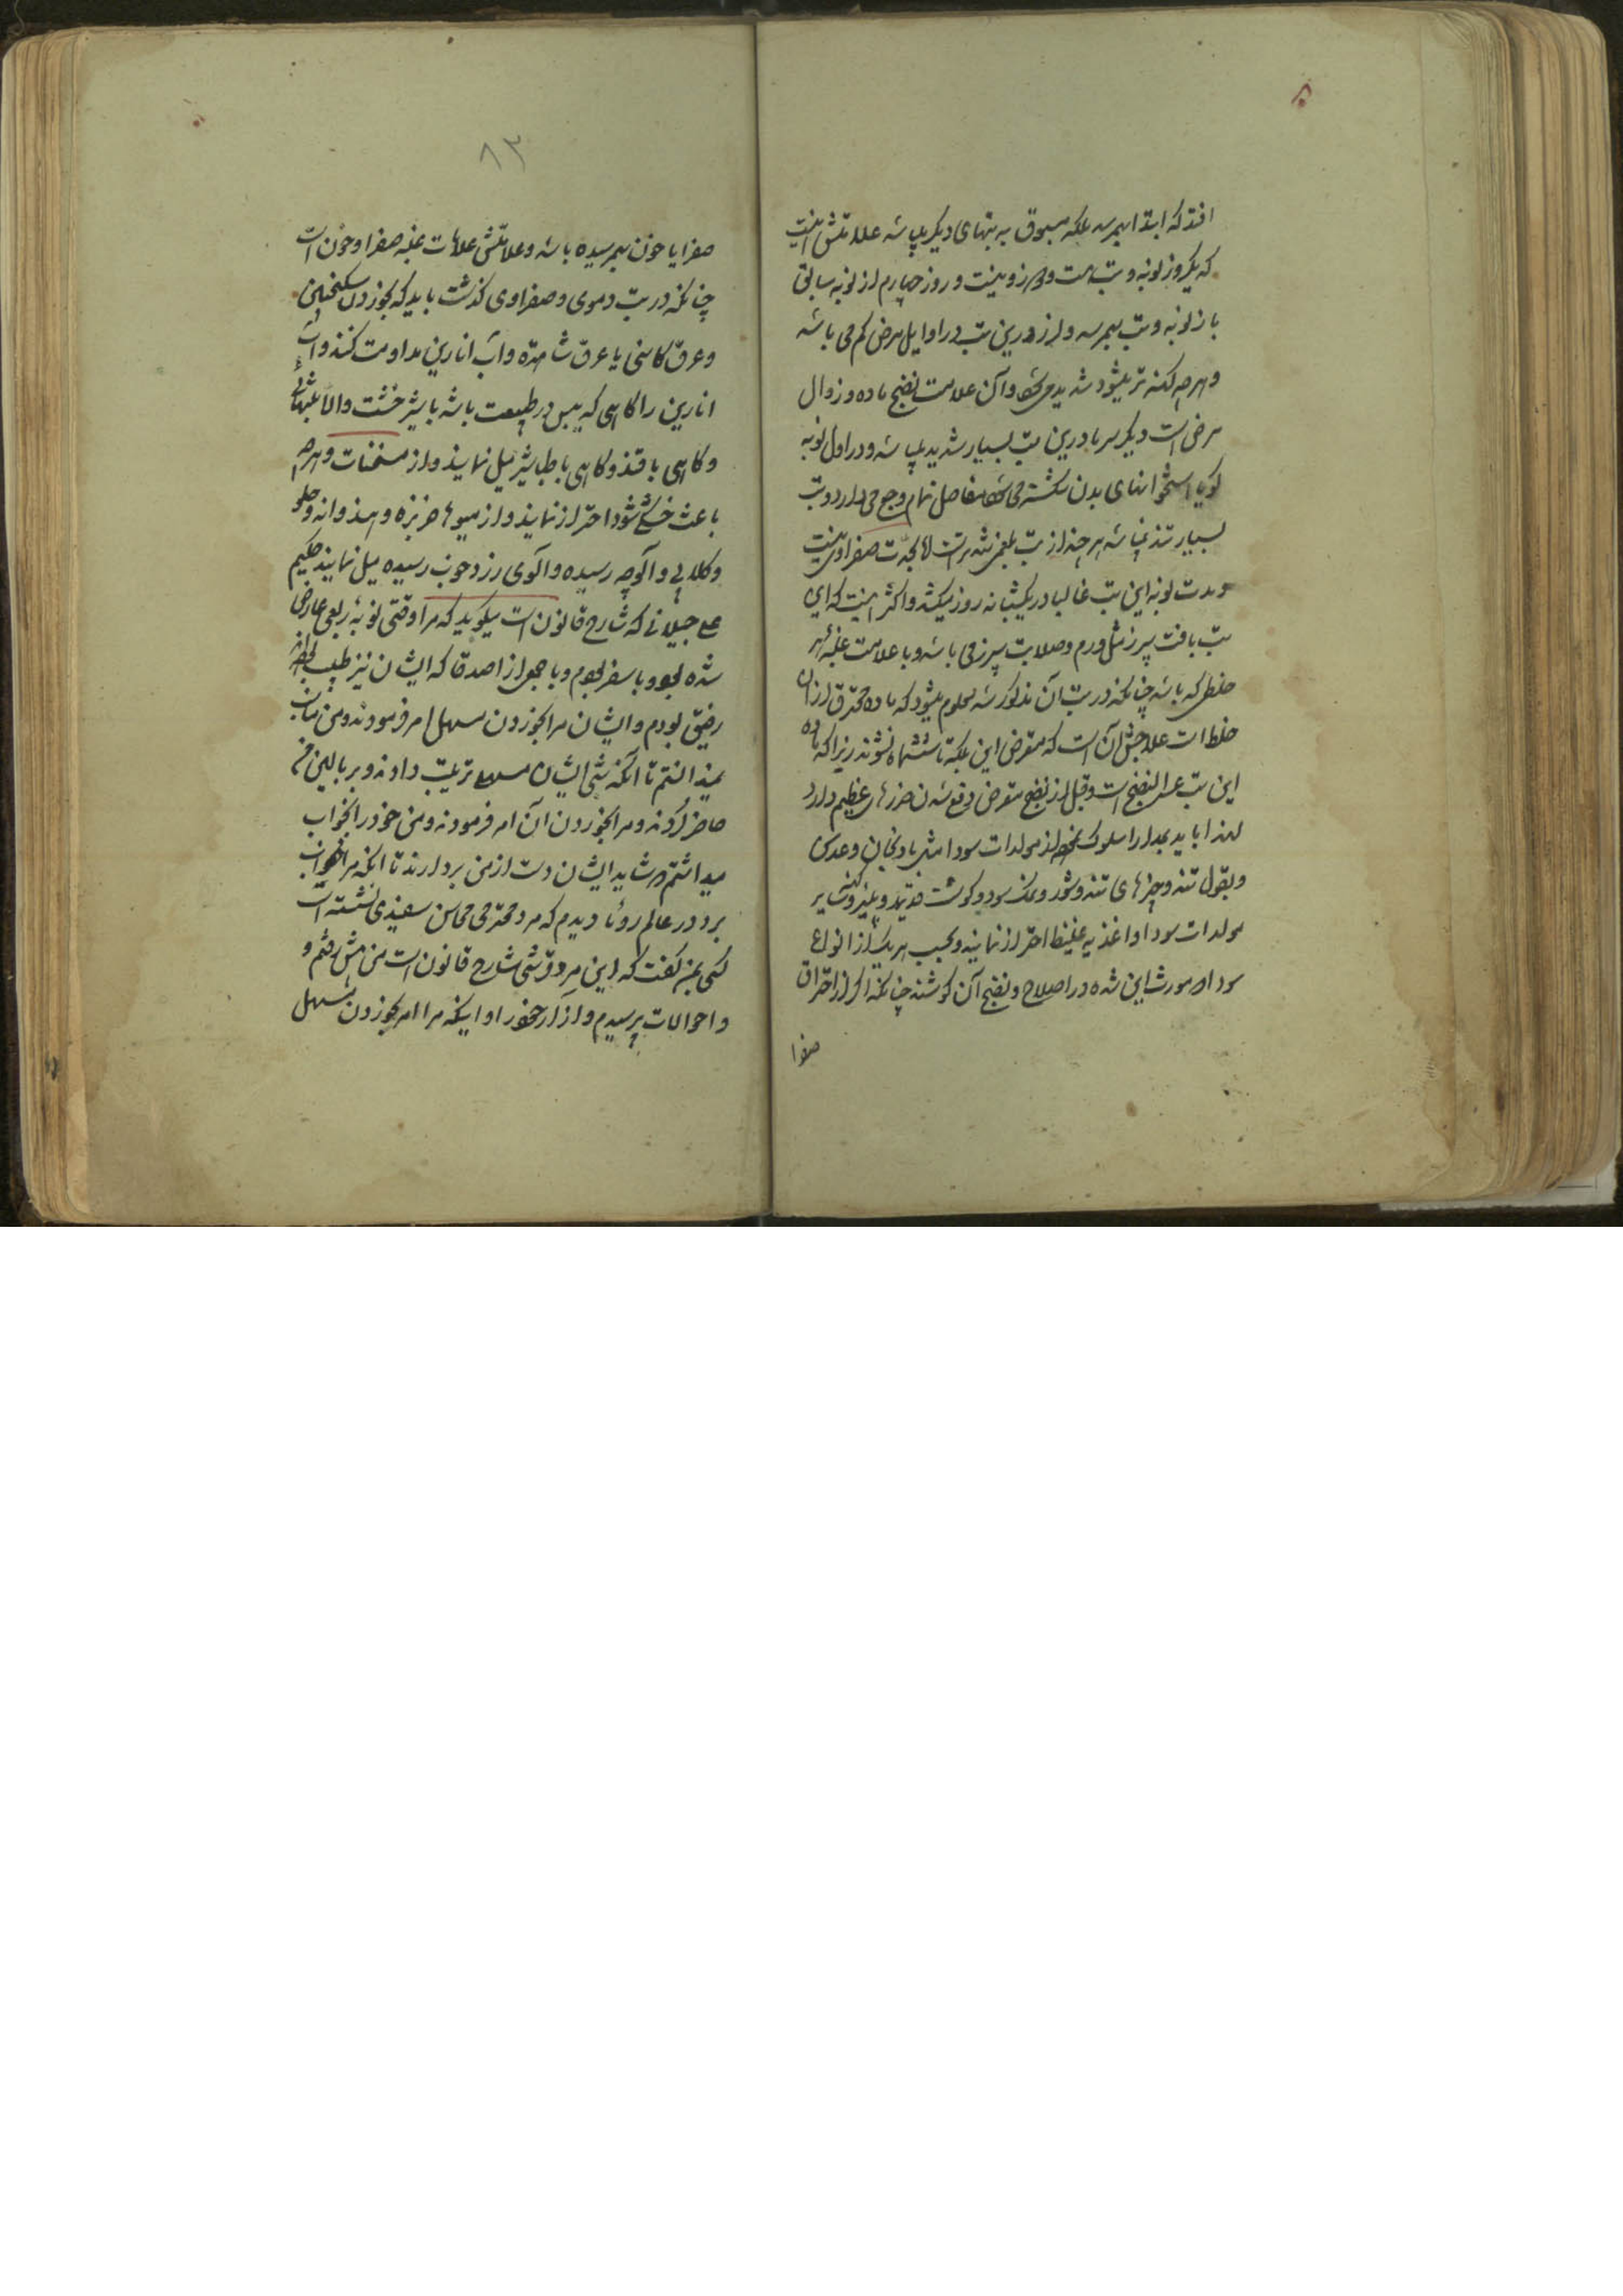 افتد که ابتدا بهمرسد بلکه مسبوق به تبهای دیگر میباشد علامتش اینست
که یکروز نوبه و تب هست و دو روز نیست و روز چهارم از نوبه سابق
باز نوبه و تب بهمرسد و لرز درین تب در اوایل مرض کم می باشد
و هرچه کهنه تر میشود شدید می شود و آن علامت نضج ماده و زوال
مرض است دیگر سرما درین تب بسیار شدید میباشد و در اول نوبه
گویا استخوانهای بدن شکسته می شود مفاصل تمام وجع می دارد و تب
بسیار تند نمیباشد هر چند از تب بلغمی تندتر است اما بحدت صفراوی نیست
و مدت نوبه این تب غالبا در یکشبانه روز میکشد و اکثر اینست که این
تب بافت سپرز مثل ورم و صلابت سپرز می باشد و با علامت غلبه هر
خلطی که باشد چنانکه در تب آن مذکور شد معلوم میشود که ماده محترق از آن
خلط است علاجش آن است که متعرض این بلکه تا ششماه نشوند زیرا که ماده
این تب عسر النضج است و قبل از نضج متعرض دفع شدن ضررهای عظیم دارد
لهذا باید بمدارا سلوک نموده از مولدات سودا مثل بادنجان و عدس
و بقول تند و چیزهای تند و شور و نمک سود و گوشت قدید و پنیر کهنه و سایر
مولدات سودا و اغذیه غلیظ احتراز نمایند و بحسب هر یک از انواع
سودا که مورث این شده در اصلاح و نضج آن کوشند چنانکه اگر از احتراق
صفرا
۸۳
صفرا یا خون بهمرسیده باشد و علامتش علامات غلبه صفرا و خون است
چنانکه در تب دموی و صفراوی گذشت باید که بخوردن سکنجبین
و عرق کاسنی یا عرق شاهتره و آب انارین مداومت کنند و آب
انارین را گاهی که یبس در طبیعت باشد با شیرخشت والا بتنهائی
و گاهی با قند و گاهی با طباشیر میل نمایند و از مسخنات و هرچه
باعث خشکی شود احتراز نمایند و از میوها خربزه و هندوانه و هلو
و گلابی و آلوچه رسیده و آلوی زرد خوب رسیده میل نمایند حکیم
علی جیلانی که شارح قانون است میگوید که مرا وقتی نوبه ربعی عارض
شده بود و با سفر بودم و با جمعی از اصدقا که ایشان نیز طبیب بودند
رفیق بودم و ایشان مرا بخوردن مسهل امر فرمودند و من مناسب
نمیدانستم تا آنکه شبی ایشان مسهل ترتیب دادند و بر بالین من
حاضر کردند و مرا بخوردن آن امر فرمودند و من خود را بخواب
میداشتم که شاید ایشان دست از من بردارند تا آنکه مرا خواب
برد در عالم رؤیا دیدم که مرد محترمی محاسن سفیدی نشسته است
کسی بمن گفت که این مرد قرشی شارح قانون است من پیش رفتم و
و احوالات پرسیدم و از آزار خود را و اینکه مرا امر بخوردن مسهل